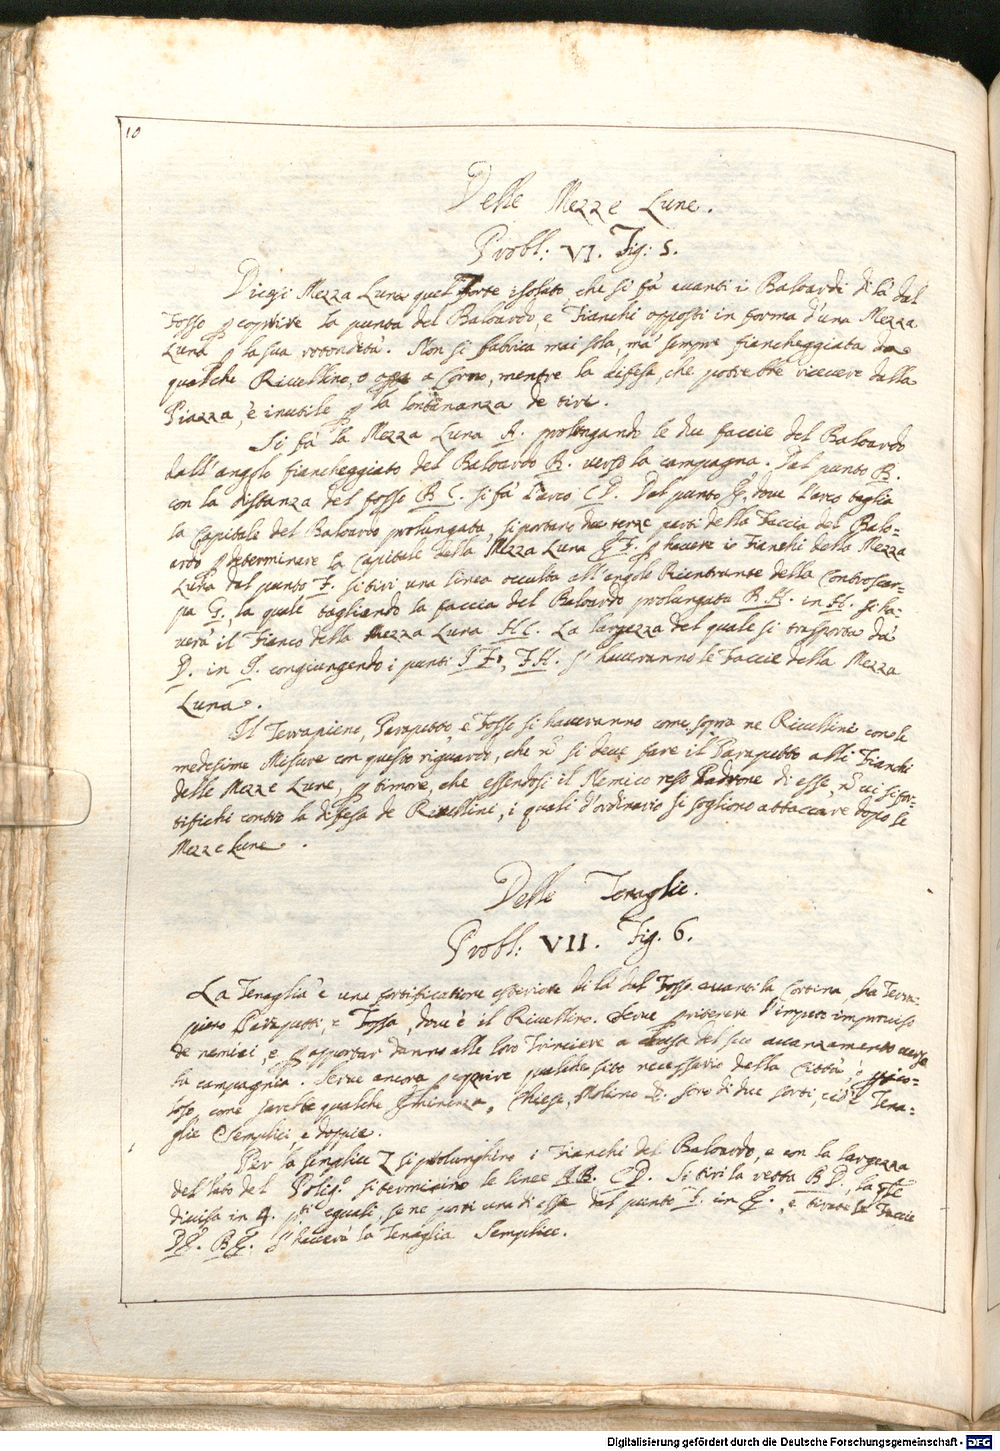 10
Delle Mezze Lune.
Probl: VI. Fig: 5.
Dicesi Mezza Luna quel Forte isolato, che si fà avanti i Baloardi di là dal
Fosso p coprire la punta del Baloardo, e Fianchi opposti in forma d'una Mezza
Luna p la sua rotondità. Non si fabrica mai sola, mà sempre fiancheggiata da
qualche Rivellino, o opa a Corno, mentre la difesa, che potrebbe ricevere dalla
Piazza, è inutile p la lontananza de tiri.
Si fà la Mezza Luna A. prolongando le due faccie del Baloardo
dall'angolo fiancheggiato del Baloardo B. verso la campagna. Dal punto B.
con la distanza del fosso B C. si fà l'arco C D. Dal punto E, dove l'arco taglia
la Capitale del Baloardo prolungata, si portano due terze parti della Faccia del Balo=
ardo p determinare la Capitale della Mezza Luna E F. p havere i Fianchi della Mezza
Luna dal punto F. si tiri una linea occulta all'angolo Rientrante della Controscar=
pa G., la quale tagliando la faccia del Baloardo prolungata B.H. in H. si ha=
verà il Fianco della Mezza Luna H C. La largezza del quale si trasporta da
D. in I. congiungendo i punti I F, F.H. s'haveranno le Faccie della Mezza
Luna.
Il Terrapieno, Parapetto, e Fosso si haveranno come sopra ne Rivellini con le
medesime Misure con questo riguardo, che ñ si deve fare il Parapetto alli Fianchi
delle Mezze Lune, p timore, che essendosi il Nemico reso Padrone di esse, ñ vi si for=
tifichi contro la difesa de Rivellini, i quali d'ordinario si sogliono attaccare dopo le
Mezze Lune.
Delle Tenaglie.
Probl: VII. Fig. 6.
La Tenaglia è una fortificatione esteriore di là dal Fosso avanti la Cortina, ha Terra=
pieno Parapetti, e Fossa, dove è il Rivellino. Serve p l'impeto improviso
de nemici, e p apportar danno alle loro Trinciere a causa del suo avanzamento verso
la campagnia. Serve ancora p coprire qualche sito necessario della Città,
come sarebbe qualche Eminenza, Chiese, Molino &. sono di due sorti, cioè Tena=
glie Semplici, e doppie.
Per la semplice Z si prolunghino i Fianchi del Baloardo, e con la largezza
del lato del Polig.º si terminino le linee A B. C D. Si tiri la retta B D.,
divisa in 4. p.ti eguali, se ne porti una di esse dal punto F. in E., e tirate le Faccie
D E. B E. s'haverà la Tenaglia Semplice.
Digitalisierung gefördert durch die Deutsche Forschungsgemeinschaft - DFG